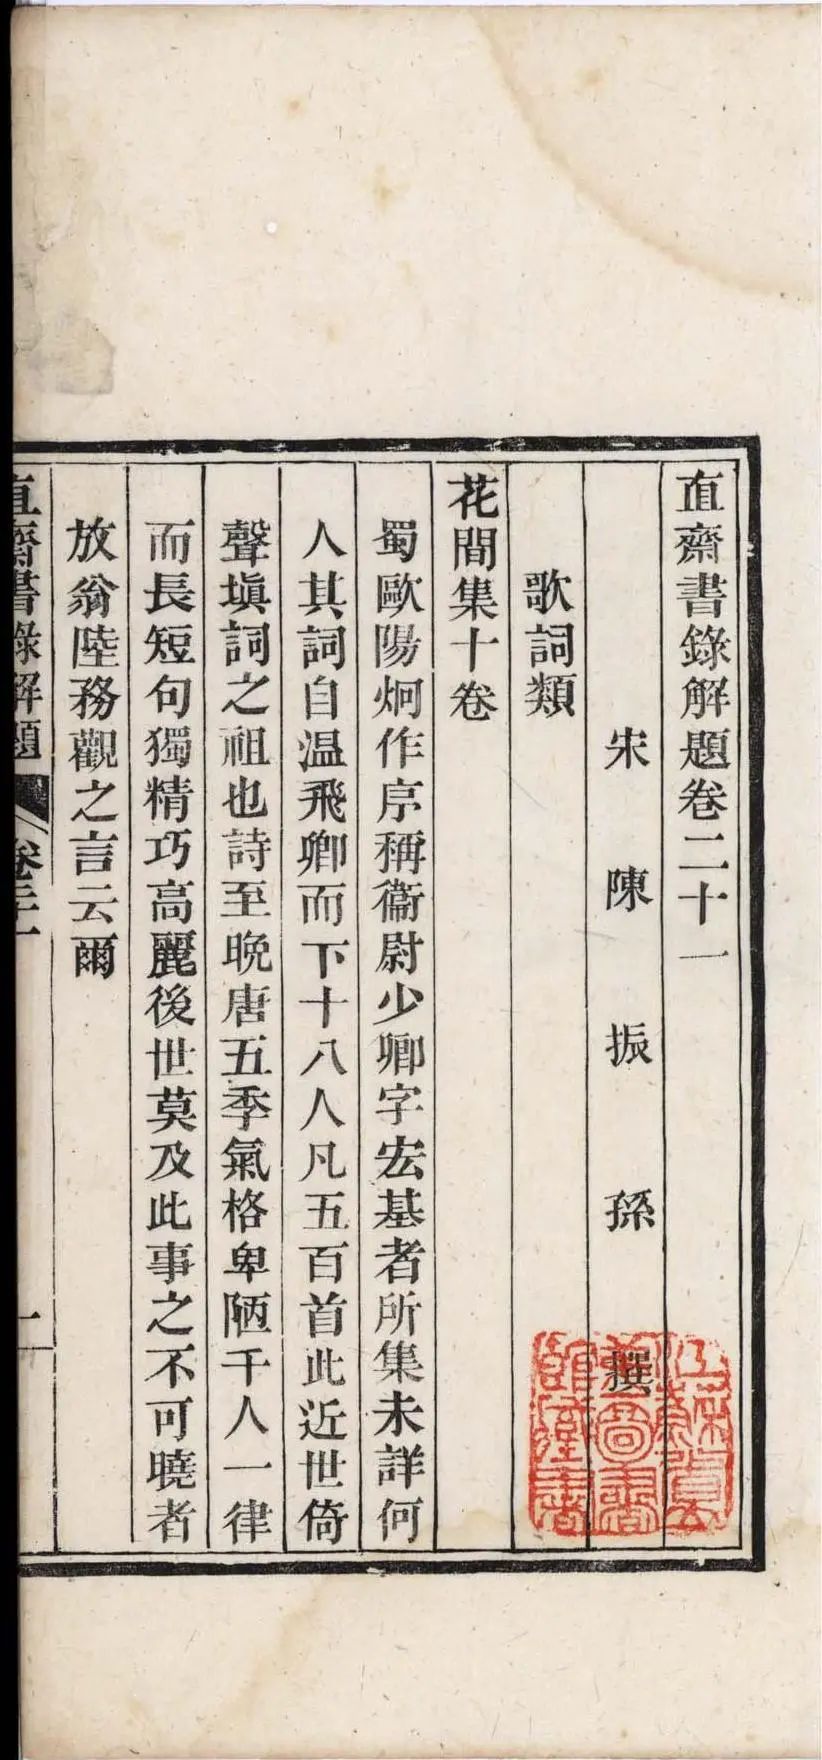 直齋書錄解題卷二十一
宋陳振孫撰
歌詞類
花間集十卷
蜀歐陽炯作序稱衞尉少卿字宏基者所集未詳何
人其詞自温飛卿而下十八人凡五百首此近世倚
聲塡詞之祖也詩至晩唐五季氣格卑陋千人一律
而長短句獨精巧高麗後世莫及此事之不可曉者
放翁陸務觀之言云爾
直齋書錄解題
卷二十一
一